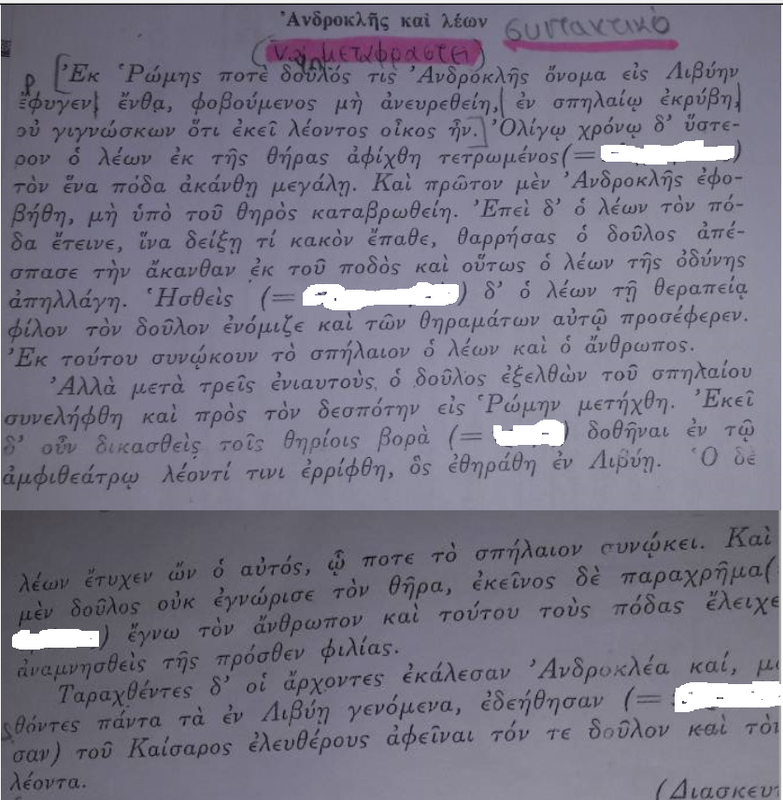 Ἀνδροκλῆς καὶ λέων
συντακτικό
(να μεταφραστεί)
Ἐκ Ῥώμης ποτὲ δοῦλός τις Ἀνδρόκλῆς ὄνομα εἰς Λιβύην
ἔφυγεν, ἔνθα, φοβούμενος μὴ ἀνευρεθείη, ἐν σπηλαίῳ ἐκρύβη,
οὐ γιγνώσκων ὅτι ἐκεῖ λέοντος οἶκος ἦν. Ὀλίγῳ χρόνῳ δ' ὕστε-
ρον ὁ λέων ἐκ τῆς θήρας ἀφίχθη τετρωμένος (= )
τὸν ἕνα πόδα ἀκάνθῃ μεγάλῃ. Καὶ πρῶτον μὲν Ἀνδροκλῆς ἐφο-
βήθη, μὴ ὑπὸ τοῦ θηρὸς καταβρωθείη. Ἐπεὶ δ' ὁ λέων τὸν πό-
δα ἔτεινε, ἵνα δείξῃ τί κακὸν ἔπαθε, θαρρήσας ὁ δοῦλος ἀπέ-
σπασε τὴν ἄκανθαν ἐκ τοῦ ποδὸς καὶ οὕτως ὁ λέων τῆς ὀδύνης
ἀπηλλάγη. Ἡσθεὶς (= ) δ' ὁ λέων τῇ θεραπείᾳ
φίλον τὸν δοῦλον ἐνόμιζε καὶ τῶν θηραμάτων αὐτῷ προσέφερεν.
Ἐκ τούτου συνῴκουν τὸ σπήλαιον ὁ λέων καὶ ὁ ἄνθρωπος.
Ἀλλὰ μετὰ τρεῖς ἐνιαυτοὺς, ὁ δοῦλος ἐξελθὼν τοῦ σπηλαίου
συνελήφθη καὶ πρὸς τὸν δεσπότην εἰς Ῥώμην μετήχθη. Ἐκεῖ
δ' οὖν δικασθεὶς τοῖς θηρίοις βορὰ (= ) δοθῆναι ἐν τῷ
ἀμφιθεάτρῳ λέοντί τινι ἐρρίφθη, ὃς ἐθηράθη ἐν Λιβύῃ. Ὁ δὲ
λέων ἔτυχεν ὢν ὁ αὐτός, ᾧ ποτε τὸ σπήλαιον συνῴκει. Καὶ
μὲν δοῦλος οὐκ ἐγνώρισε τὸν θῆρα, ἐκεῖνος δὲ παραχρῆμα (
) ἔγνω τὸν ἄνθρωπον καὶ τούτου τοὺς πόδας ἔλειχε
ἀναμνησθεὶς τῆς πρόσθεν φιλίας.
Ταραχθέντες δ' οἱ ἄρχοντες ἐκάλεσαν Ἀνδροκλέα καί, μα
θόντες πάντα τὰ ἐν Λιβύῃ γενόμενα, ἐδεήθησαν (=
σαν) τοῦ Καίσαρος ἐλευθέρους ἀφεῖναι τόν τε δοῦλον καὶ τὸν
λέοντα.
(Διασκευ